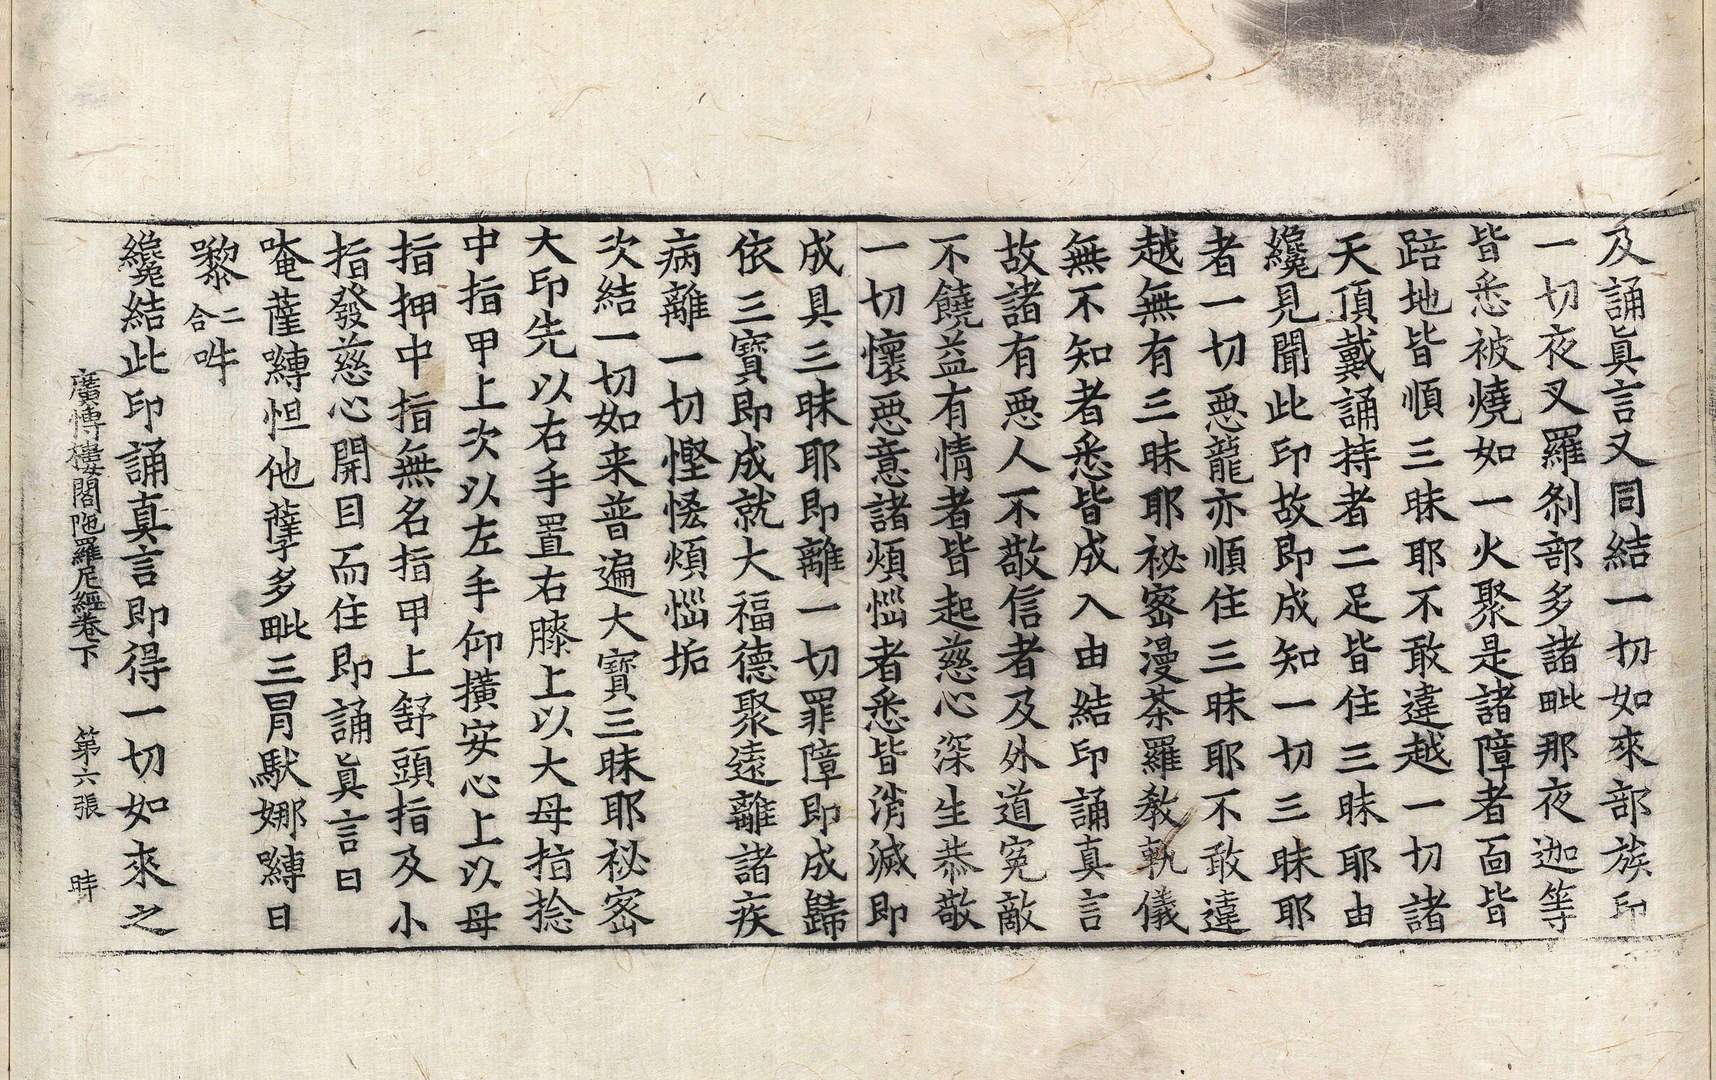 及誦眞言又同結一切如來部族印
一切夜叉羅剎部多諸毗那夜迦等
皆悉被燒如一火聚是諸障者面皆
踣地皆順三昧耶不敢違越一切諸
天頂戴誦持者二足皆住三昧耶由
纔見聞此印故即成知一切三昧耶
者一切惡龍亦順住三昧耶不敢違
越無有三昧耶祕密漫荼羅教軌儀
無不知者悉皆成入由結印誦真言
故諸有惡人不敬信者及外道冤敵
不饒益有情者皆起慈心深生恭敬
一切懷惡意諸煩惱者悉皆消滅即
成具三昧耶即離一切罪障即成歸
依三寶即成就大福德聚遠離諸疾
病離一切慳悋煩惱垢
次結一切如来普遍大寶三昧耶祕密
大印先以右手置右膝上以大母指捻
中指甲上次以左手仰擴安心上以母
指押中指無名指甲上舒頭指及小
指發慈心開目而住即誦眞言曰
唵薩嚩怛他蘖多毗三冐馱娜嚩日
嚟二合吽
纔結此印誦真言即得一切如來之
廣愽樓閣陁羅尼經卷下 第六張 時